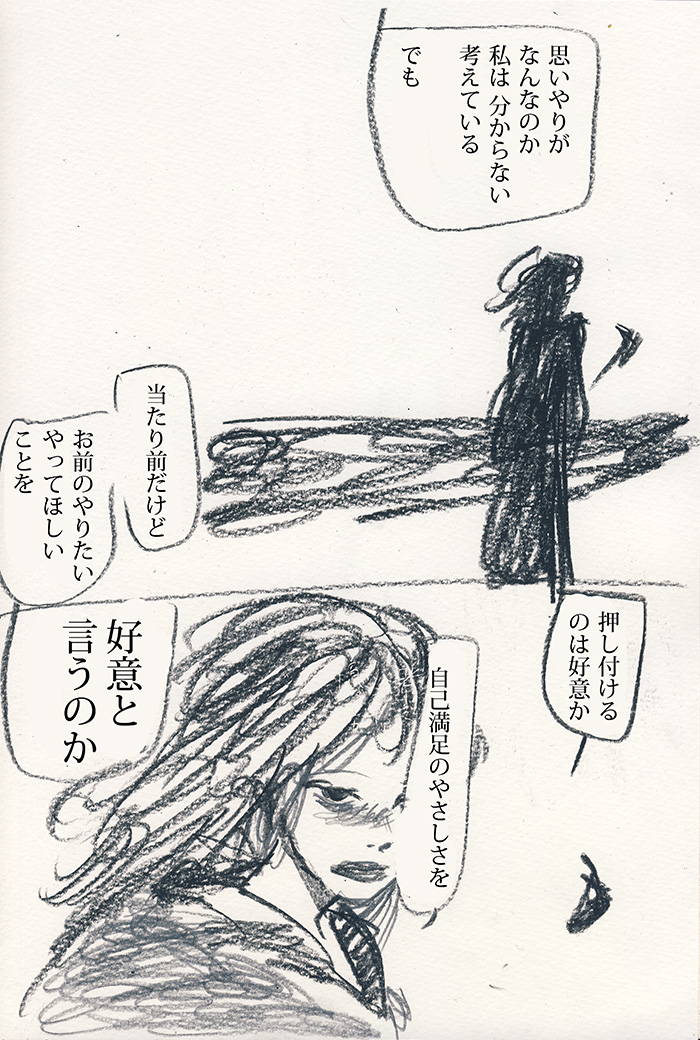 思いやりが
なんなのか
私は 分からない
考えている
でも
当たり前だけど
お前のやりたい
やってほしい
ことを
押し付ける
のは好意か
自己満足のやさしさを
好意と
言うのか